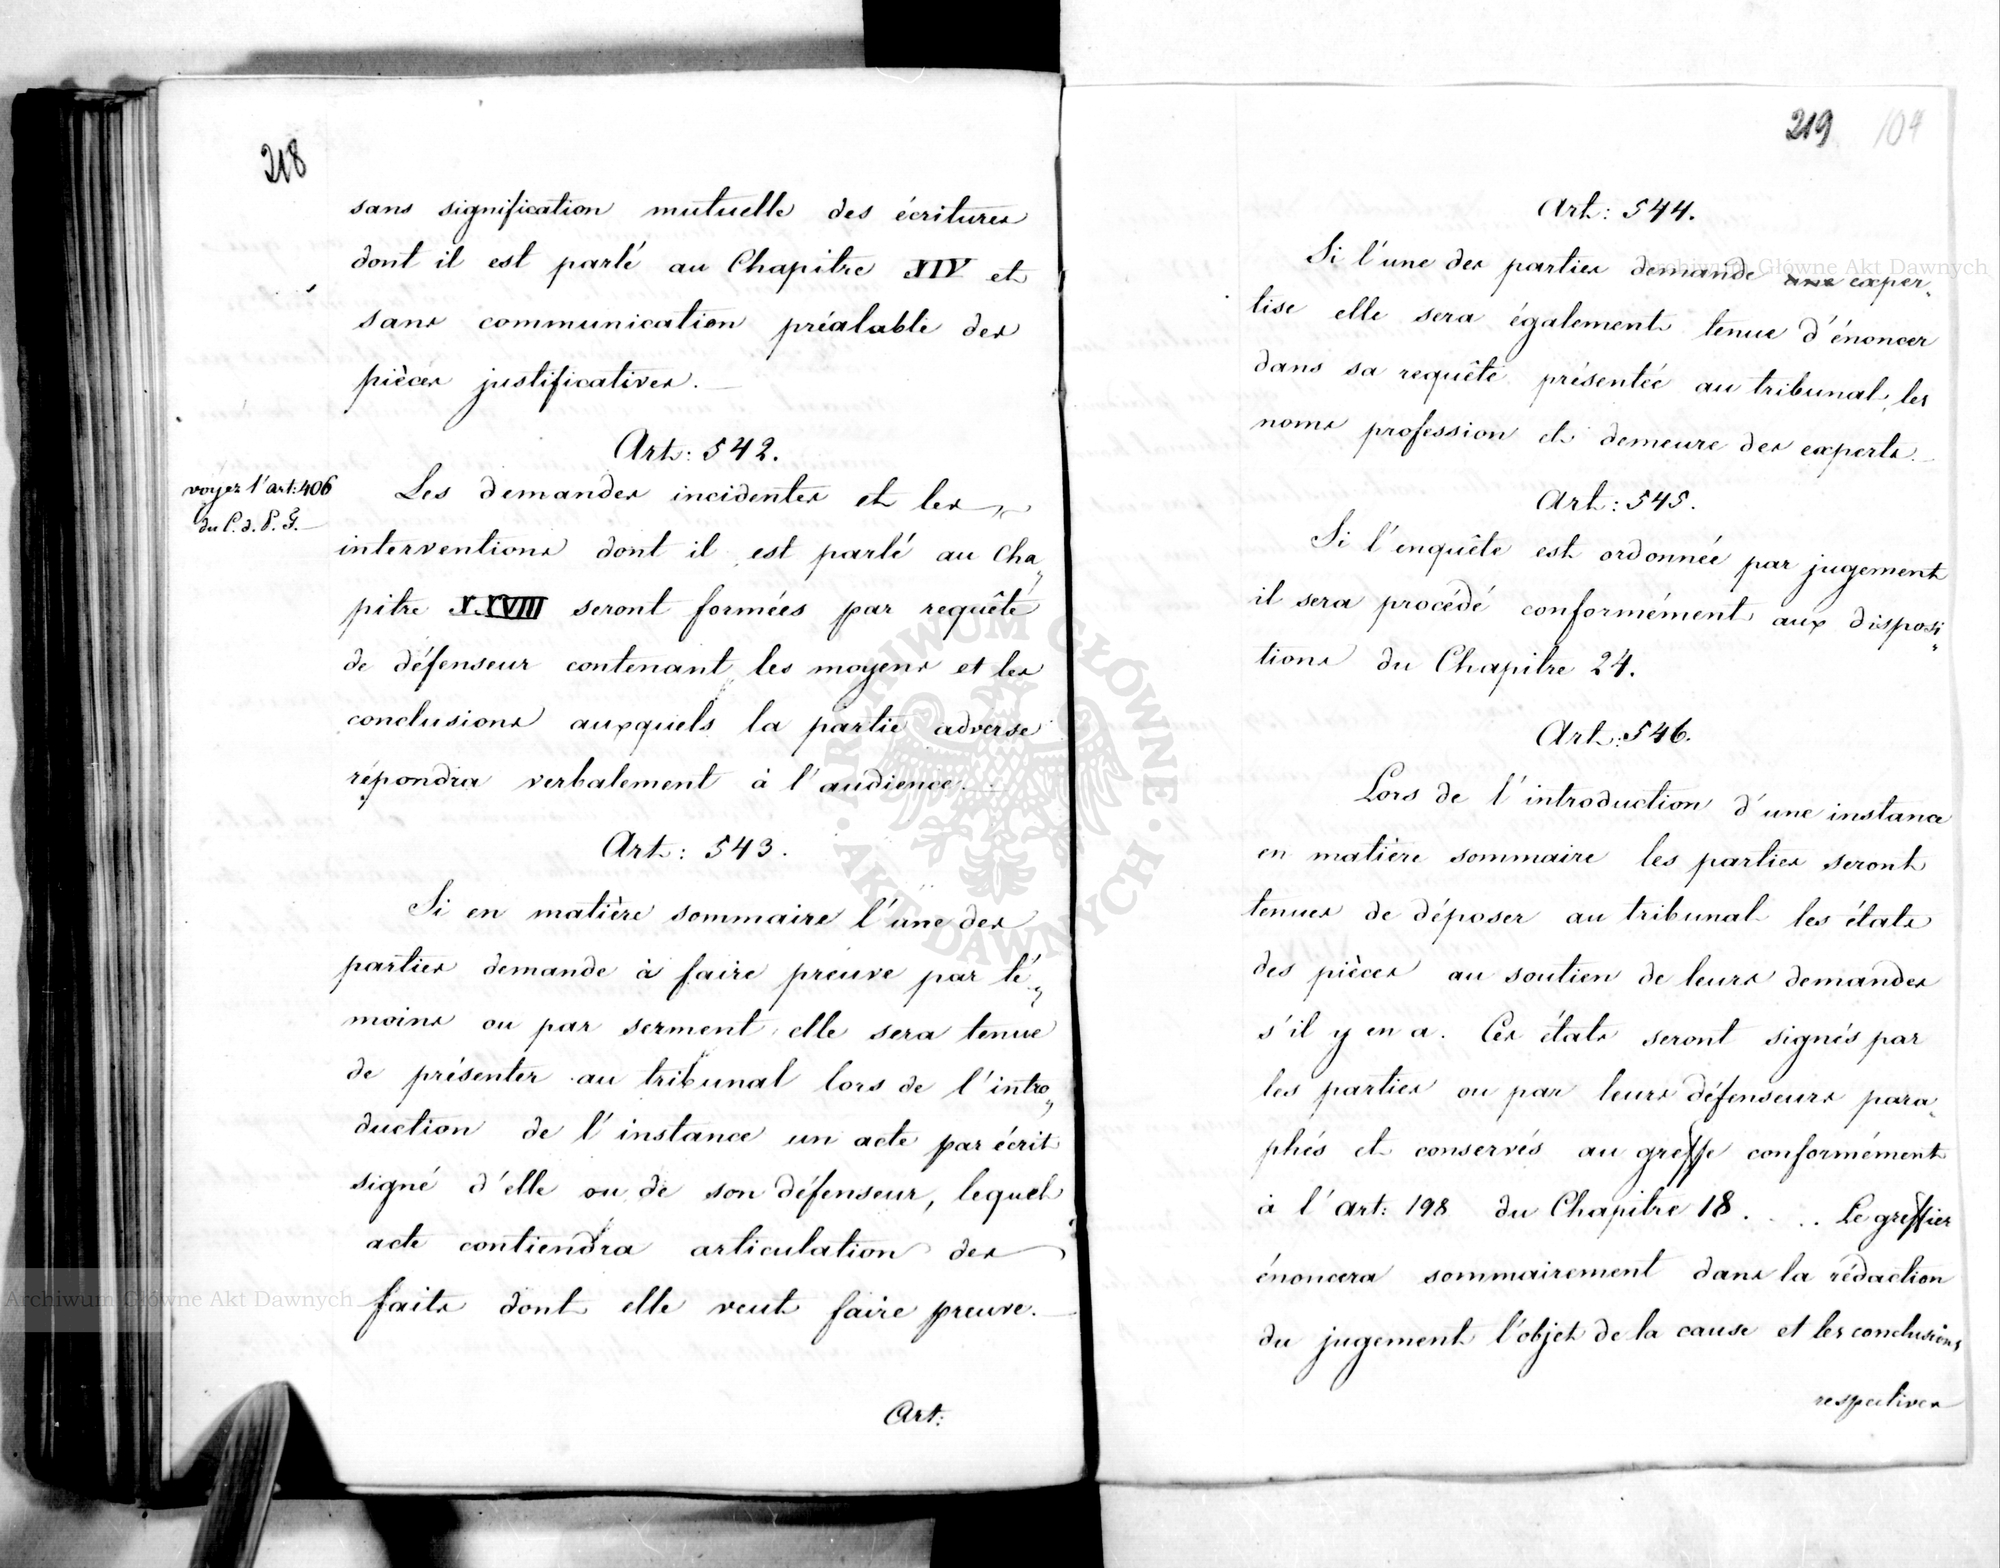 218
sans signification mutuelle des écritures
dont il est parlé au Chapitre XIV et
sans communication préalable des
pièces justificatives.
Art: 542.
voyez l'art: 406
du C. d. P. G.
Les demandes incidentes et les
interventions dont il est parlé au Cha„
pitre XXVIII seront formées par requête
de défenseur contenant les moyens et les
conclusions auxquels la partie adverse
répondra verbalement à l'audience.
Art: 543.
Si en matière sommaire l'une des
parties demande à faire preuve par té„
moins ou par serment elle sera tenue
de présenter au tribunal lors de l'intro„
duction de l'instance un acte par écrit
signé d'elle ou de son défenseur, lequel
acte contiendra articulation des
faits dont elle veut faire preuve.
Art:
219 104
Art: 544.
Si l'une des parties demande une exper„
tise elle sera également tenue d'énoncer
dans sa requête présentée au tribunal, les
noms profession et demeure des experts.
Art: 545.
Si l'enquête est ordonnée par jugement
il sera procédé conformément aux disposi„
tions du Chapitre 24.
Art: 546.
Lors de l'introduction d'une instance
en matière sommaire les parties seront
tenues de déposer au tribunal les états
des pièces au soutien de leurs demandes
s'il y en a. Ces états seront signés par
les parties ou par leurs défenseurs para„
phés et conservés au greffe conformément
à l'art: 198 du Chapitre 18. . . . Le greffier
énoncera sommairement dans la rédaction
du jugement l'objet de la cause et les conclusions
respectives
Archiwum Główne Akt Dawnych
Archiwum Główne Akt Dawnych
ARCHIWUM GŁÓWNE · AKT DAWNYCH ·